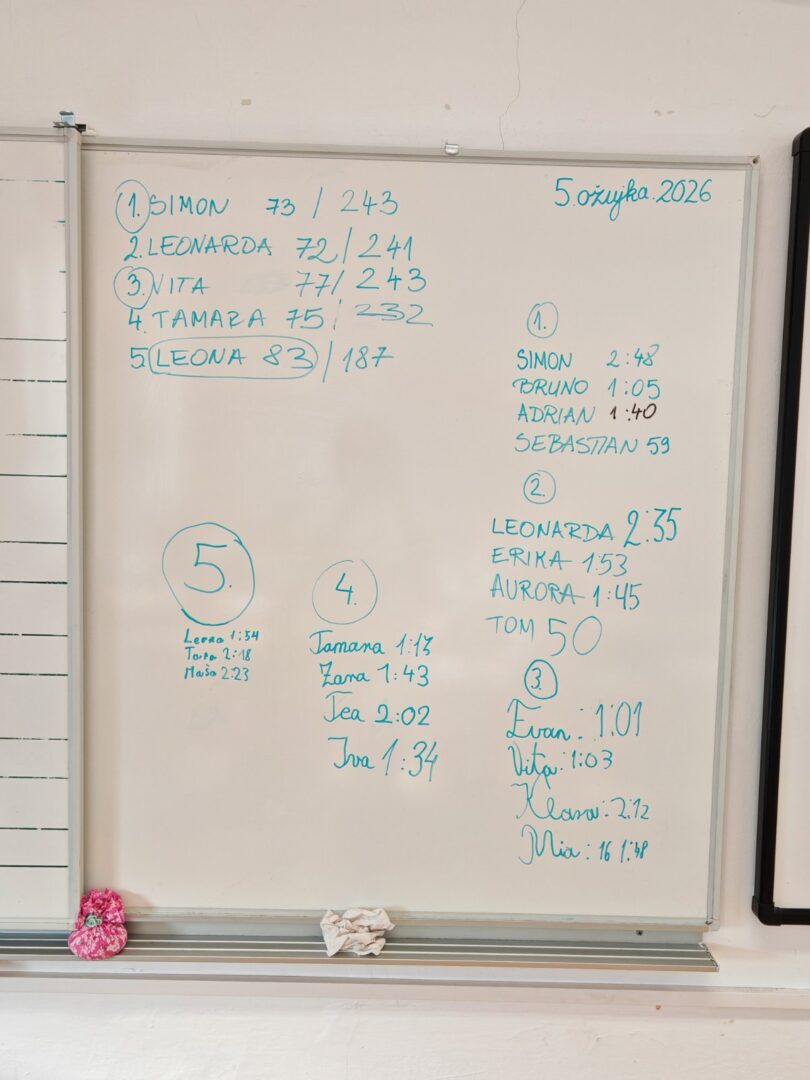 1. SIMON 73 / 243
2. LEONARDA 72 / 241
3. VITA 77 / 243
4. TAMARA 75 / 232
5. LEONA 83 / 187
5. ožujka. 2026
1.
SIMON 2:48
BRUNO 1:05
ADRIAN 1:40
SEBASTIAN 59
2.
LEONARDA 2:35
ERIKA 1:53
AURORA 1:45
TOM 50
3.
Evan: 1:01
Vita: 1:03
Klara: 2:12
Mia: 16 1:48
4.
Tamara 1:13
Zara 1:43
Tea 2:02
Iva 1:34
5.
1:54
2:18
Maša 2:23